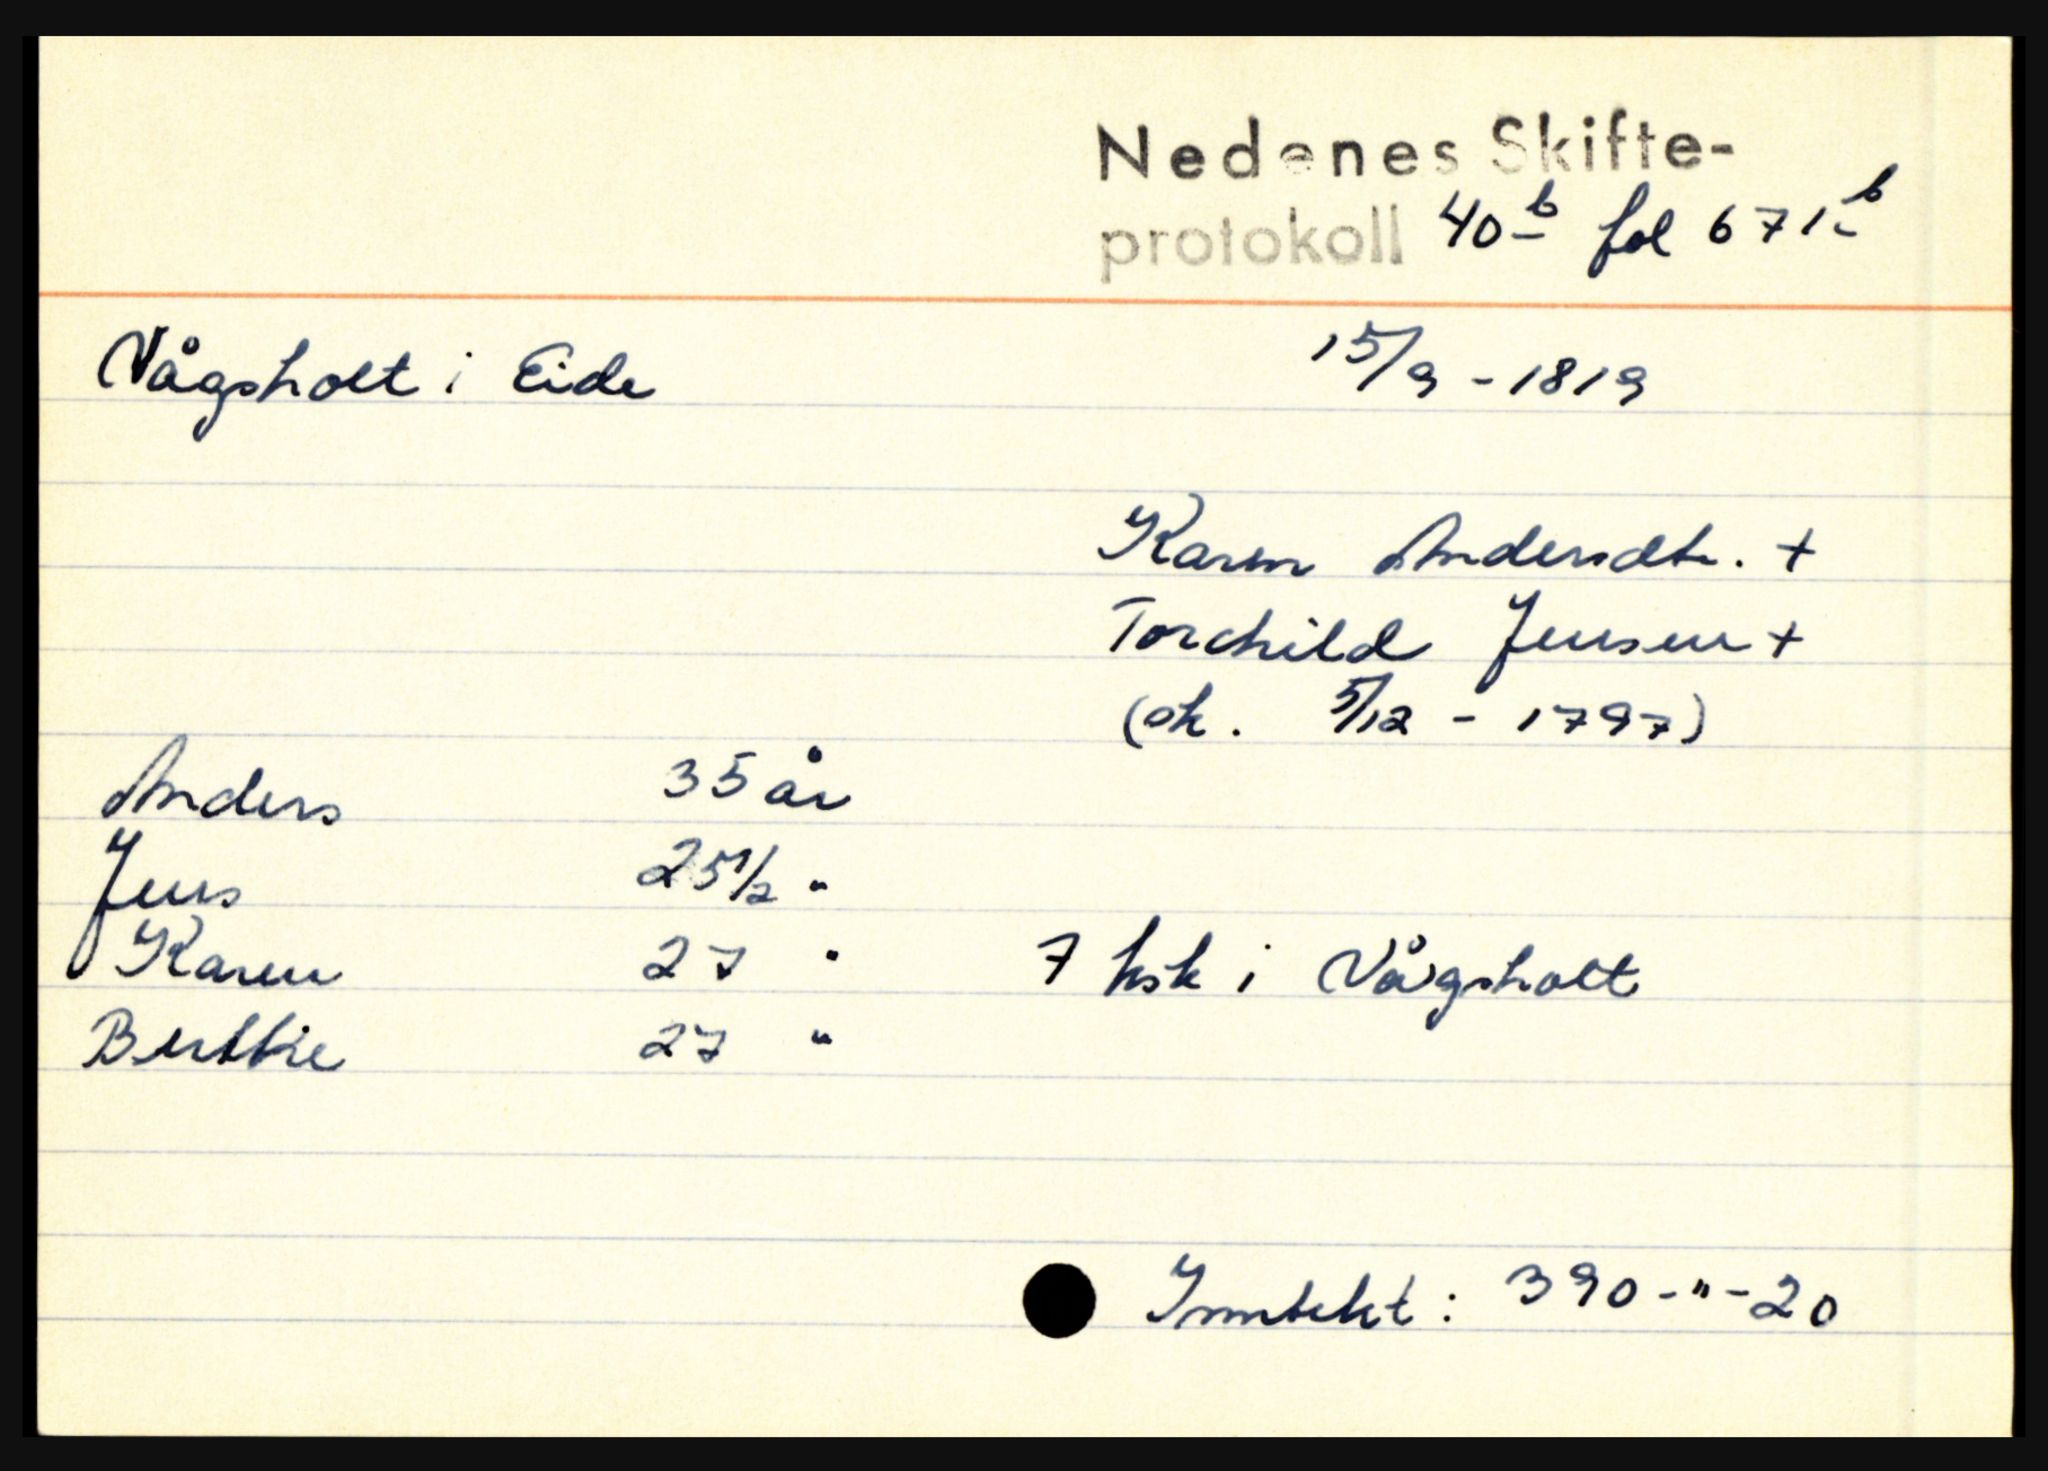 Nedenes Skifte-
protokoll 40b fol 671b
Vågsholt i Eide 15/9 - 1819
Karen Andersdtr. +
Torchild Jensen +
(sk. 5/12 - 1797)
Anders 35 år
Jens 25 1/2 "
Karen 27 "
7 hsk i Vågsholt
Berthe 27 "
Inntekt : 390-"-20